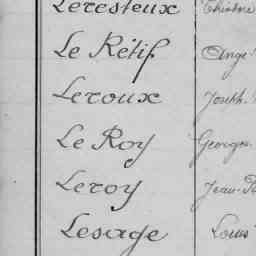 Leresteux
Le Rétif Ange
Leroux Joseph
Le Roy Georges
Leroy Jean
Lesage Louis